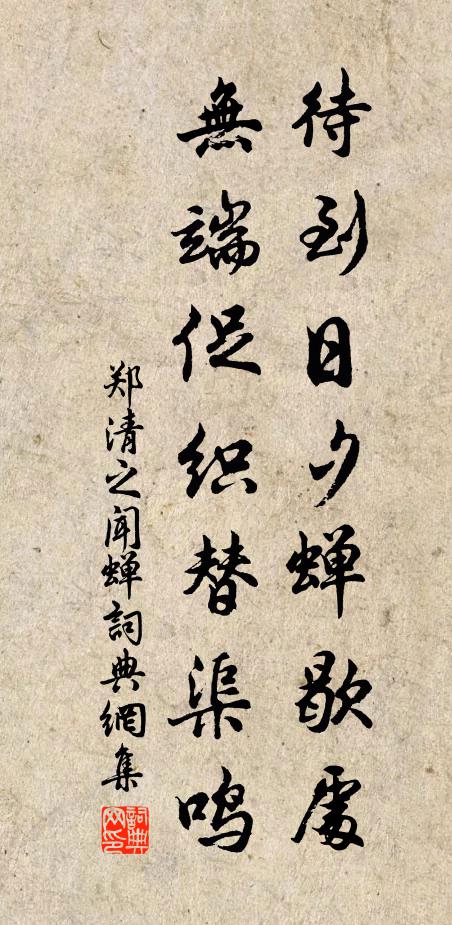 待到日夕蝉歇處
無端促织替渠鸣
郑清之闻蝉詞典網集
詞典网印